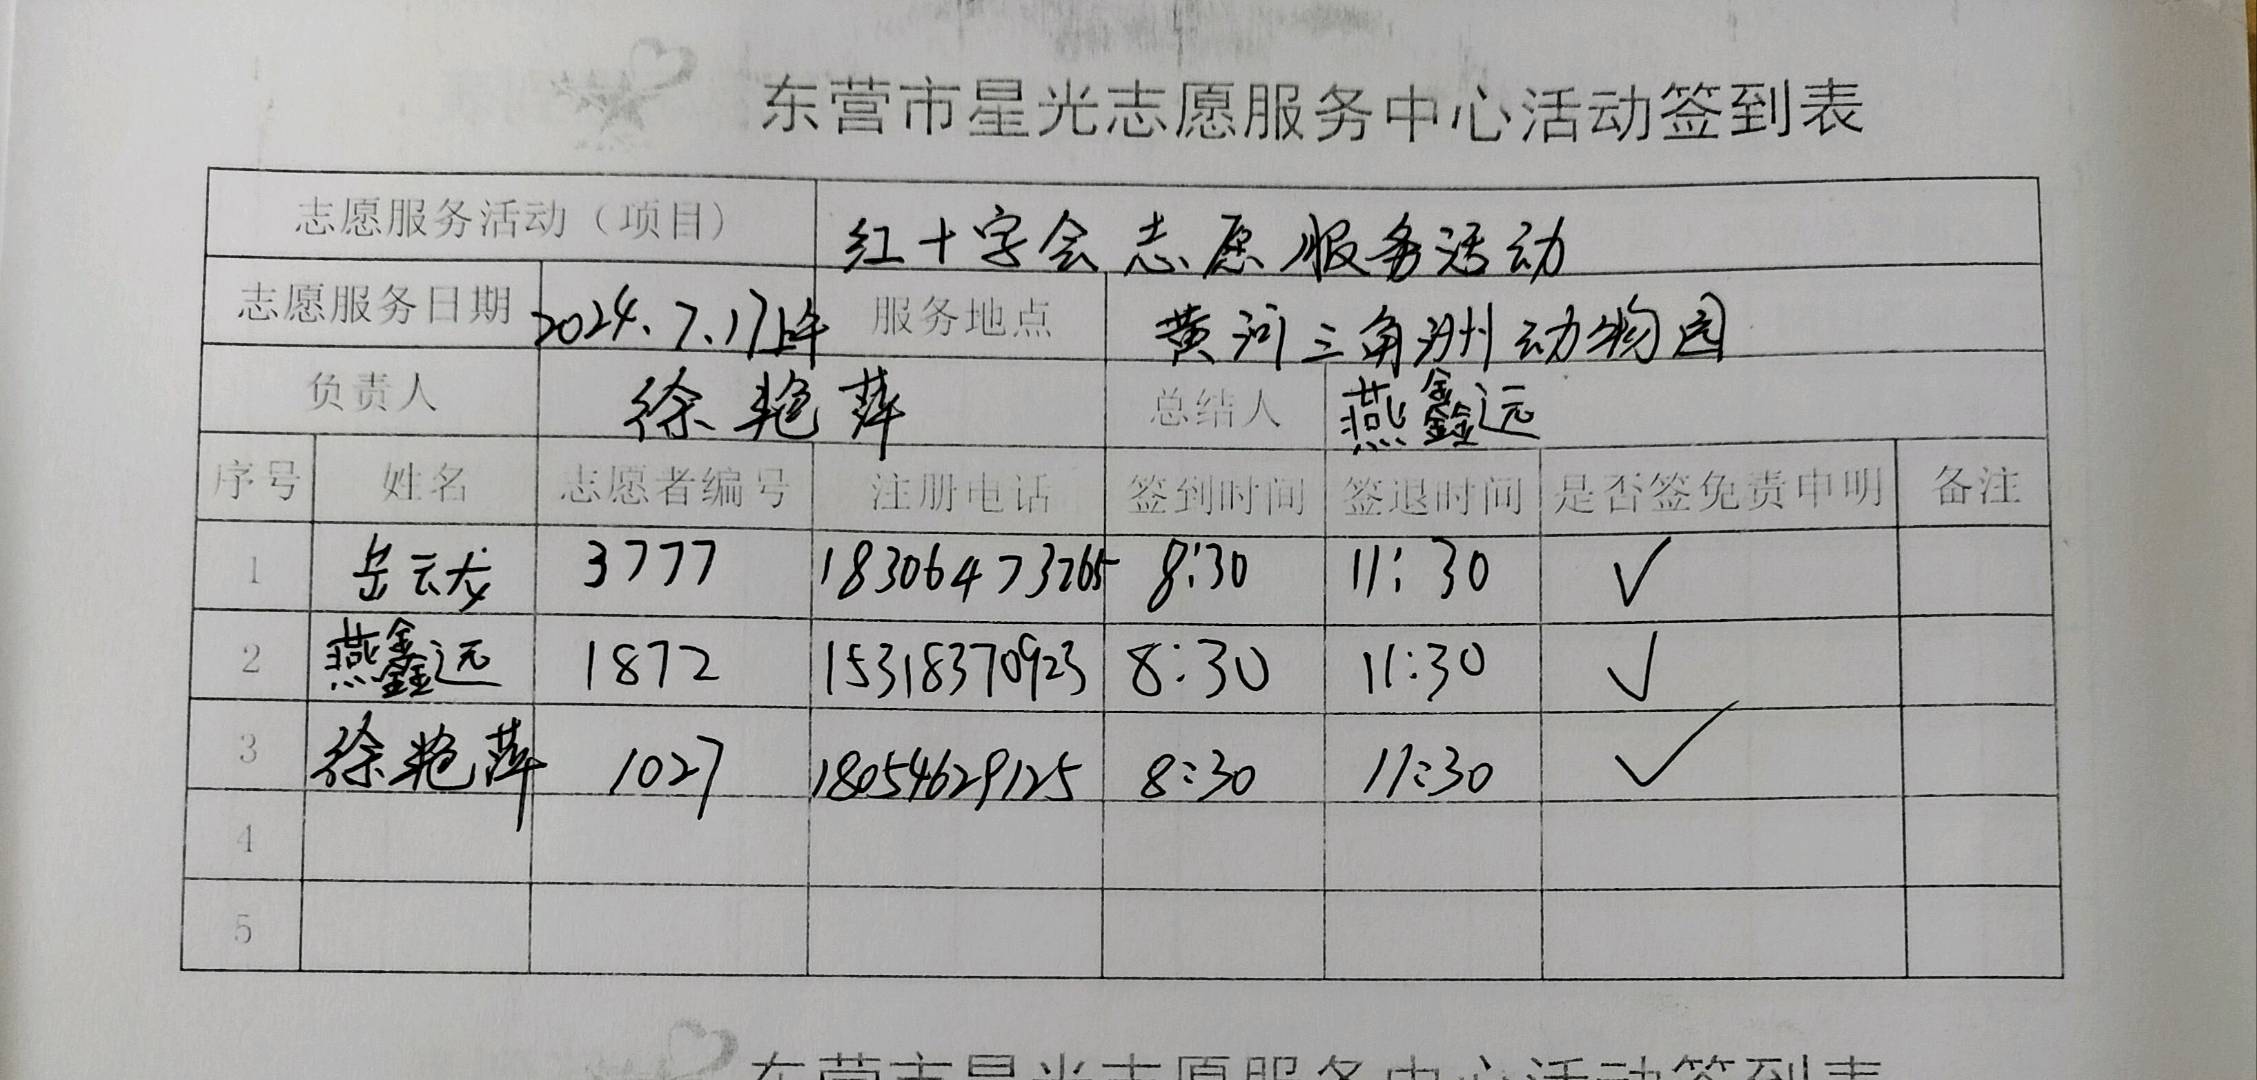 东营市星光志愿服务中心活动签到表
志愿服务活动（项目） 红十字会志愿服务活动
志愿服务日期 2024.7.17上午 服务地点 黄河三角洲动物园
负责人 徐艳萍 总结人 燕鑫远
序号 姓名 志愿者编号 注册电话 签到时间 签退时间 是否签免责申明 备注
1 岳云龙 3777 18306473265 8:30 11:30 ✓
2 燕鑫远 1872 15318370923 8:30 11:30 ✓
3 徐艳萍 1027 18054629125 8:30 11:30 ✓
4
5
东营市星光志愿服务中心活动签到表